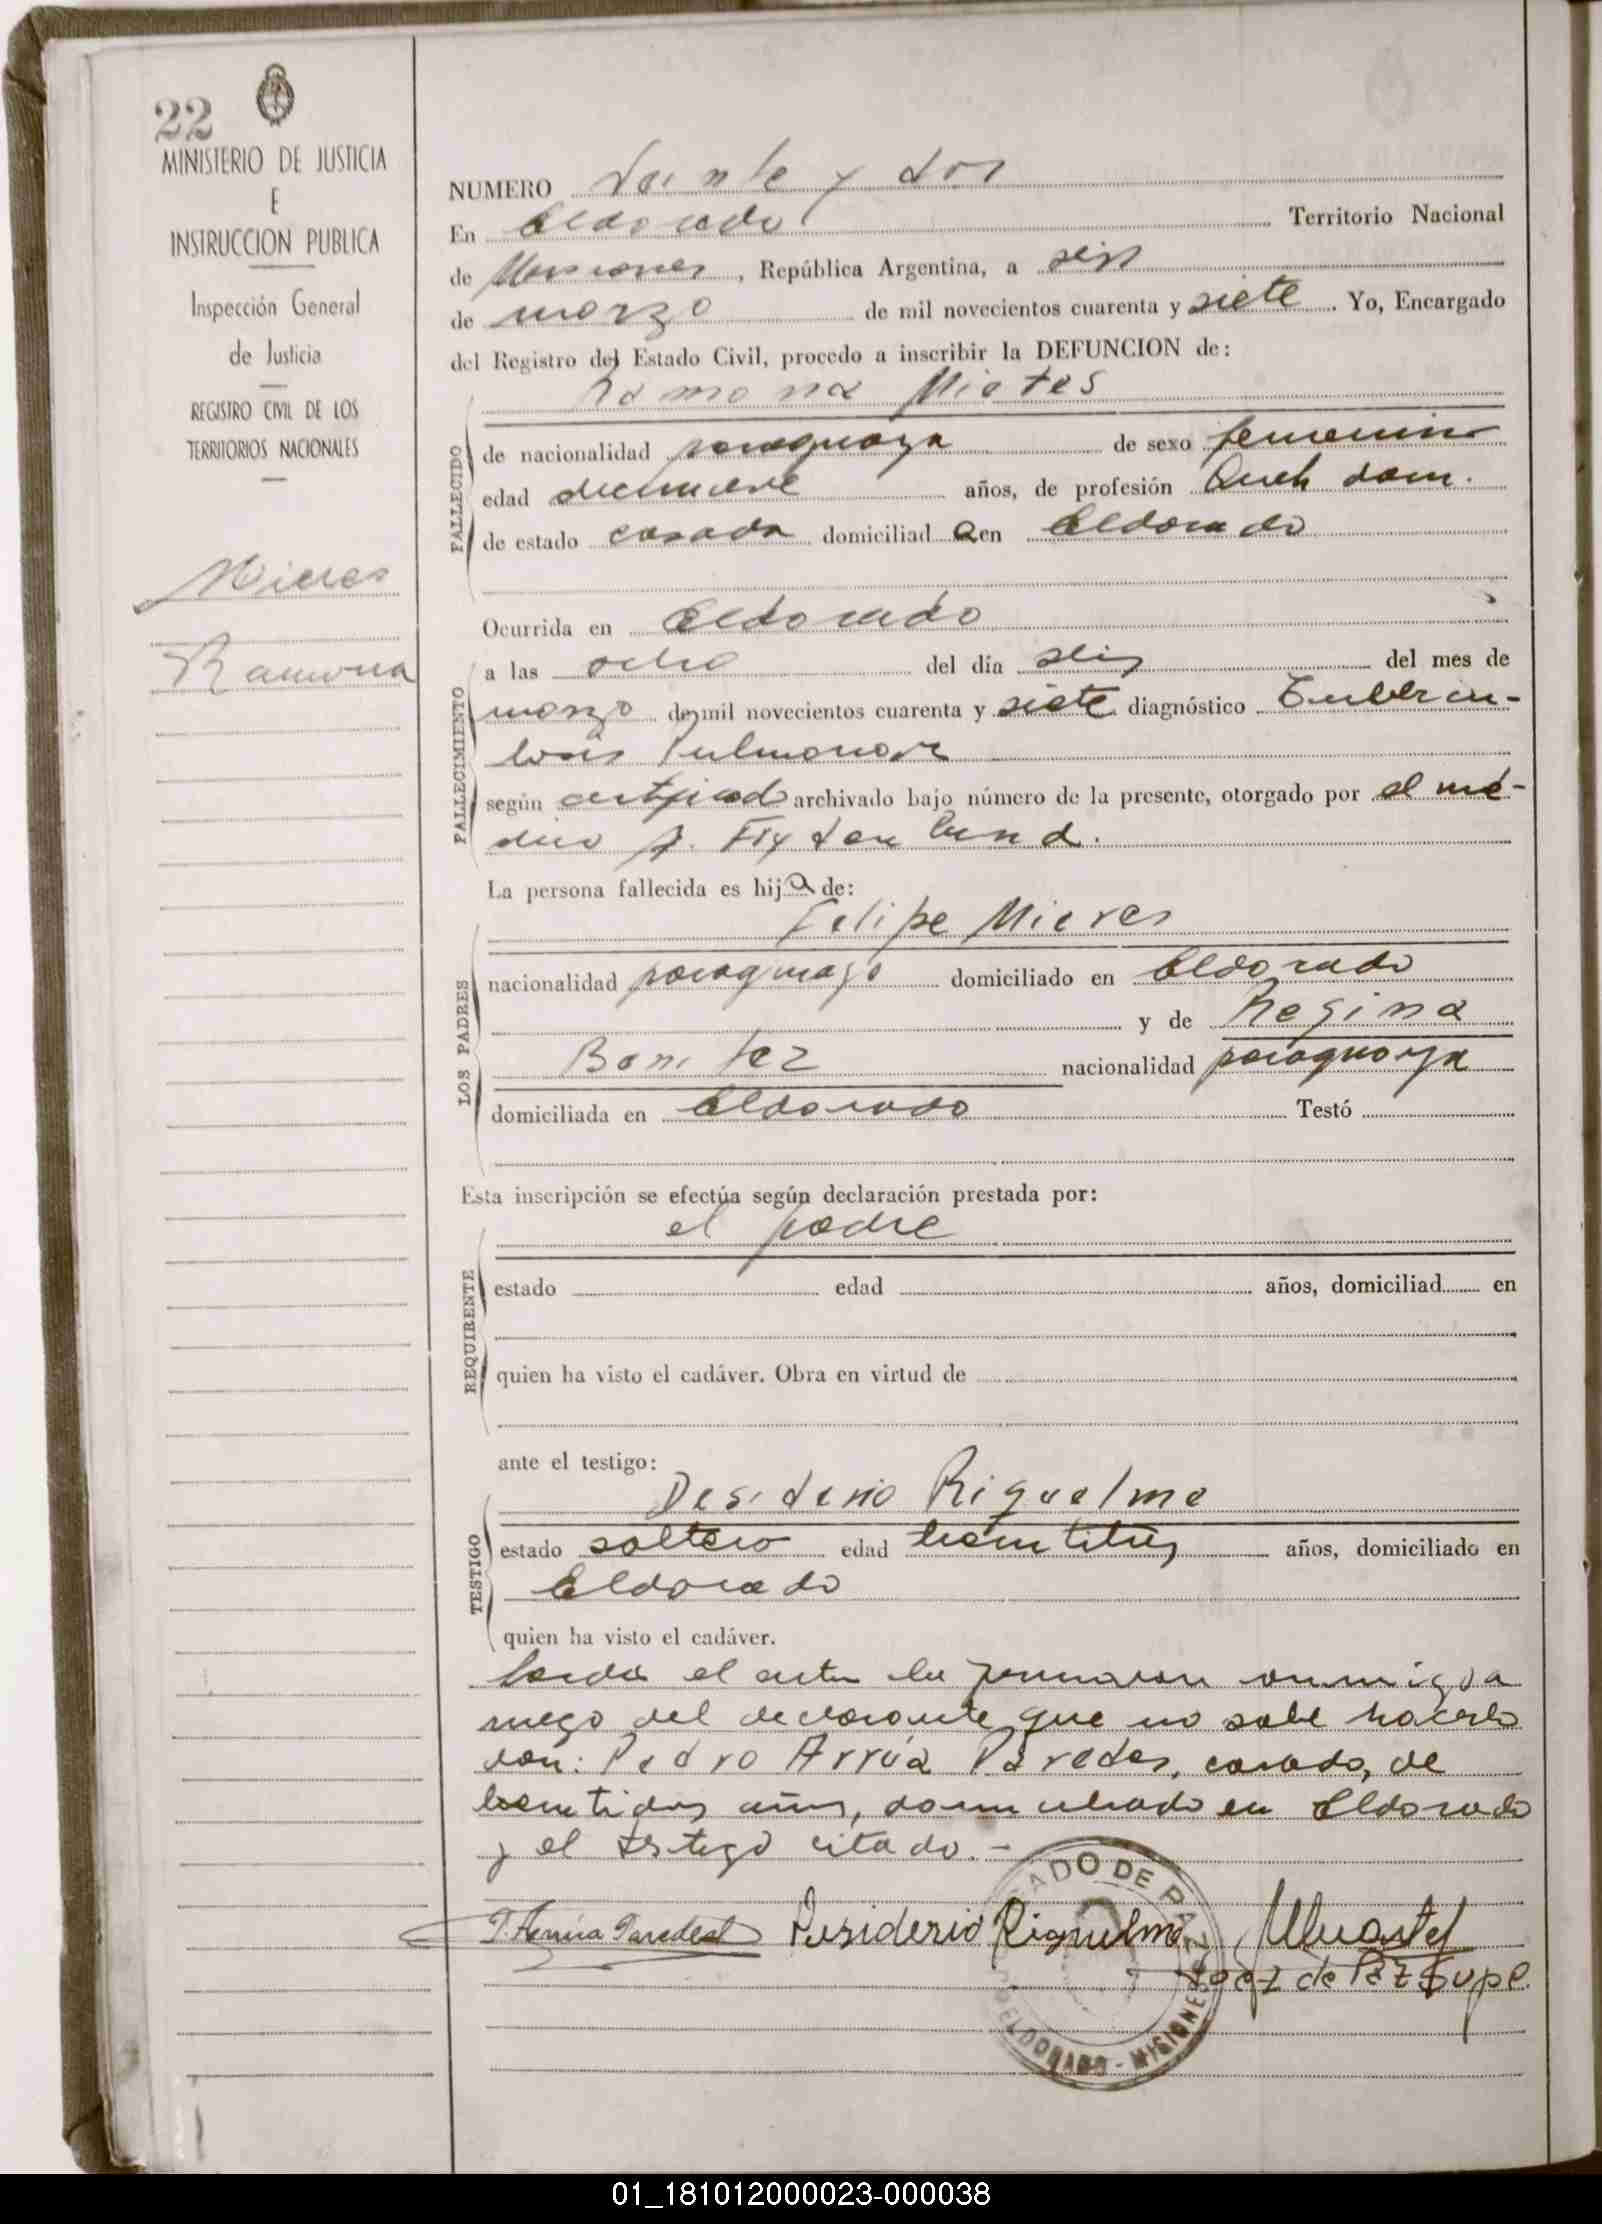 22
MINISTERIO DE JUSTICIA
E
INSTRUCCION PUBLICA
Inspección General
de Justicia
REGISTRO CIVIL DE LOS
TERRITORIOS NACIONALES
Mieres
Ramona
NUMERO Veinte y dos
En Eldorado Territorio Nacional
de Misiones, República Argentina, a seis
de marzo de mil novecientos cuarenta y siete. Yo, Encargado
del Registro del Estado Civil, procedo a inscribir la DEFUNCION de:
Ramona Mieres
FALLECIDO
de nacionalidad paraguaya de sexo femenino
edad diecinueve años, de profesión Queh dom.
de estado casada domiciliad a en Eldorado
FALLECIMIENTO
Ocurrida en Eldorado
a las ocho del día seis del mes de
marzo de mil novecientos cuarenta y siete diagnóstico Tubercu-
losis Pulmonar
según certificad archivado bajo número de la presente, otorgado por el mé-
dico
La persona fallecida es hija de:
LOS PADRES
Felipe Mieres
nacionalidad paraguayo domiciliado en Eldorado
y de Regina
Benitez nacionalidad paraguaya
domiciliada en Eldorado Testó
Esta inscripción se efectúa según declaración prestada por:
REQUIRENTE
el padre
estado edad años, domiciliad en
quien ha visto el cadáver. Obra en virtud de
ante el testigo:
TESTIGO
Desiderio Riquelme
estado soltero edad treintitres años, domiciliado en
Eldorado
quien ha visto el cadáver.
Leida el acta la firmaron conmigo a
ruego del declarante que no sabe hacerlo
don: Pedro Arrúa Paredes, casado, de
años, domiciliado en Eldorado
y el testigo citado.-
P. Arrúa Paredes Desiderio Riquelme
Juez de Paz Supl.
JUZGADO DE PAZ
ELDORADO - MISIONES
01_181012000023-000038